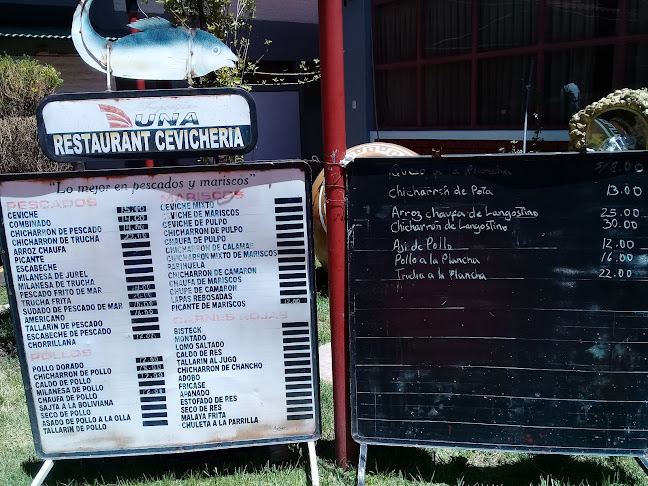 UNA
RESTAURANT CEVICHERIA
"Lo mejor en pescados y mariscos"
PESCADOS
CEVICHE
COMBINADO
CHICHARRON DE PESCADO
CHICHARRON DE TRUCHA
ARROZ CHAUFA
PICANTE
ESCABECHE
MILANESA DE JUREL
MILANESA DE TRUCHA
PESCADO FRITO DE MAR
TRUCHA FRITA
SUDADO DE PESCADO DE MAR
AMERICANO
TALLARIN DE PESCADO
ESCABECHE DE PESCADO
CHORRILLANA
POLLOS
POLLO DORADO
CHICHARRON DE POLLO
CALDO DE POLLO
MILANESA DE POLLO
CHAUFA DE POLLO
SAJTA A LA BOLIVIANA
SECO DE POLLO
ASADO DE POLLO A LA OLLA
TALLARIN DE POLLO
MARISCOS
CEVICHE MIXTO
CEVICHE DE MARISCOS
CEVICHE DE PULPO
CHICHARRON DE PULPO
CHAUFA DE PULPO
CHICHARRON DE CALAMAR
CHICHARRON MIXTO DE MARISCOS
PARIHUELA
CHICHARRON DE CAMARON
CHAUFA DE MARISCOS
CHUPE DE CAMARON
LAPAS REBOSADAS
PICANTE DE MARISCOS
CARNES ROJAS
BISTECK
MONTADO
LOMO SALTADO
CALDO DE RES
TALLARIN AL JUGO
CHICHARRON DE CHANCHO
ADOBO
FRICASE
APANADO
ESTOFADO DE RES
SECO DE RES
MALAYA FRITA
CHULETA A LA PARRILLA
a la Plancha S/8.00
Chicharrón de Pota 13.00
Arroz chaufa de Langostino 25.00
Chicharrón de Langostino 30.00
Aji de Pollo 12.00
Pollo a la Plancha 16.00
Trucha a la Plancha 22.00